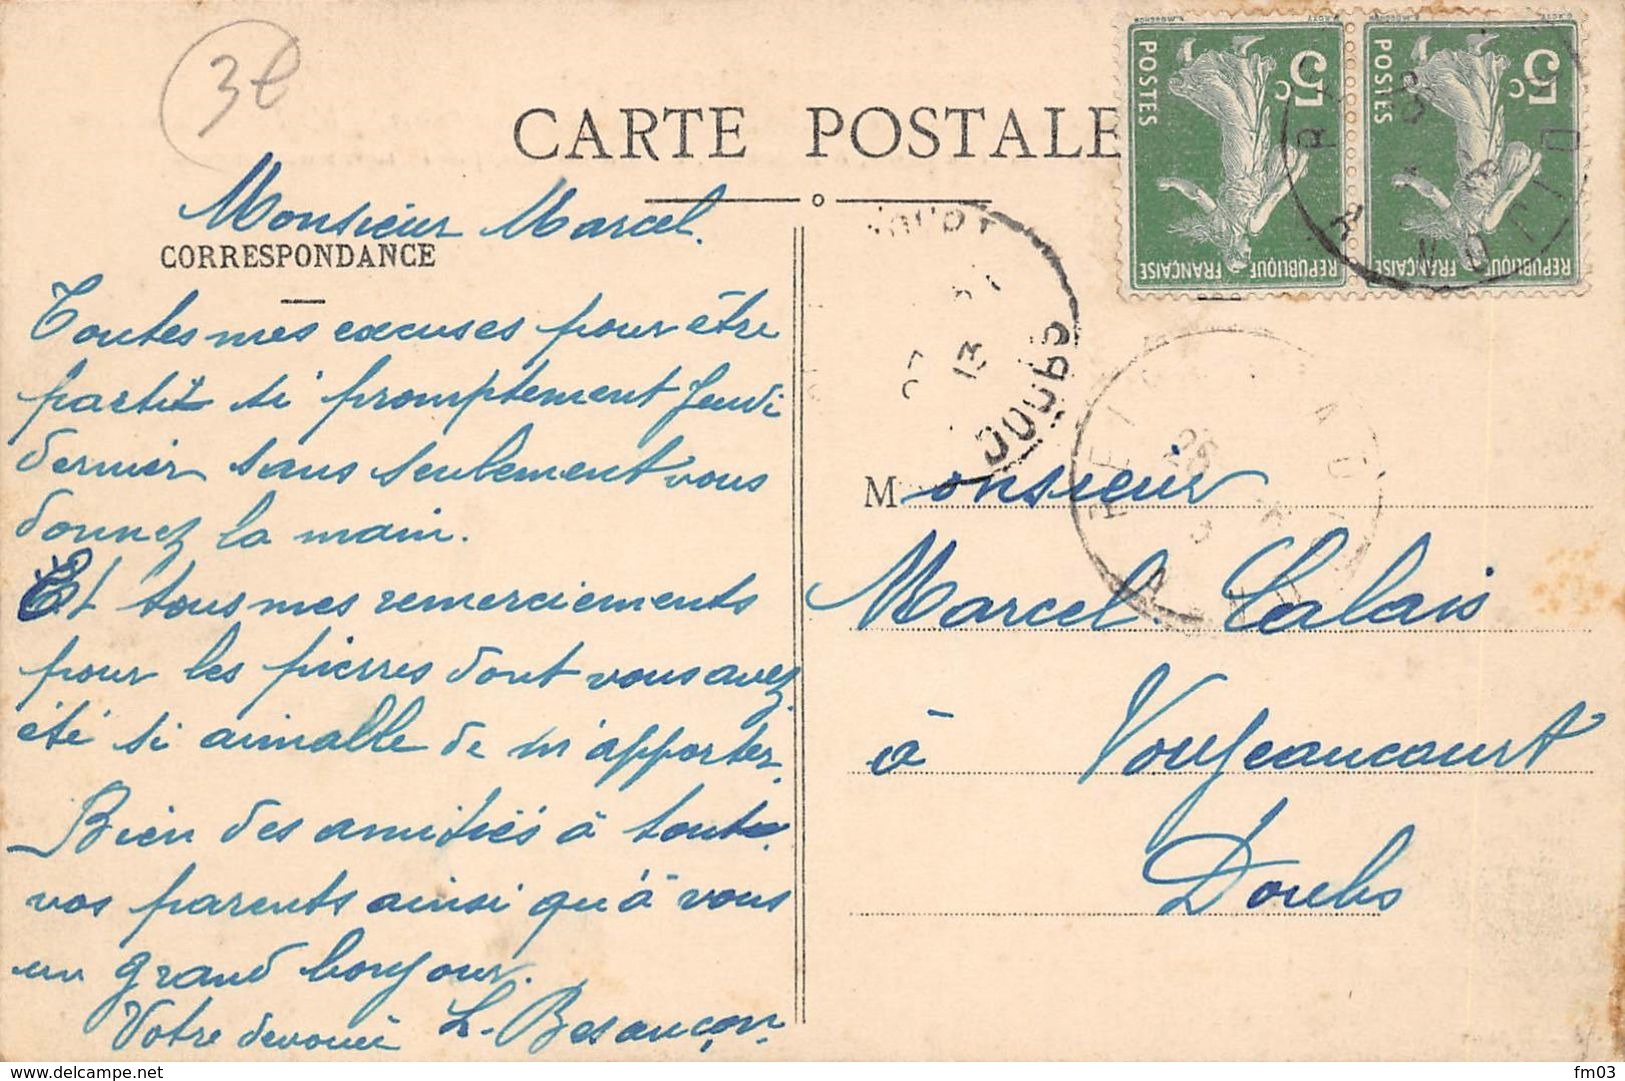 3€
CARTE POSTALE
Monsieur Marcel.
CORRESPONDANCE
Toutes mes excuses pour être
partit si promptement Jeudi
dernier sans seulement vous
donnez la main.
Et tous mes remerciements
pour les pierres dont vous avez
été si aimable de m'apporter.
Bien des amitiés à touts
vos parents ainsi qu'à vous
un grand bonjour.
Votre dévoué L. Besançon.
5c
POSTES
REPUBLIQUE FRANÇAISE
5c
POSTES
REPUBLIQUE FRANÇAISE
DOUBS
13
Monsieur
Marcel Calais
à Voujeaucourt
Doubs
fm03